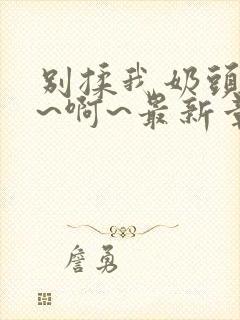 别揉我奶頭
~啊~最新章
詹勇